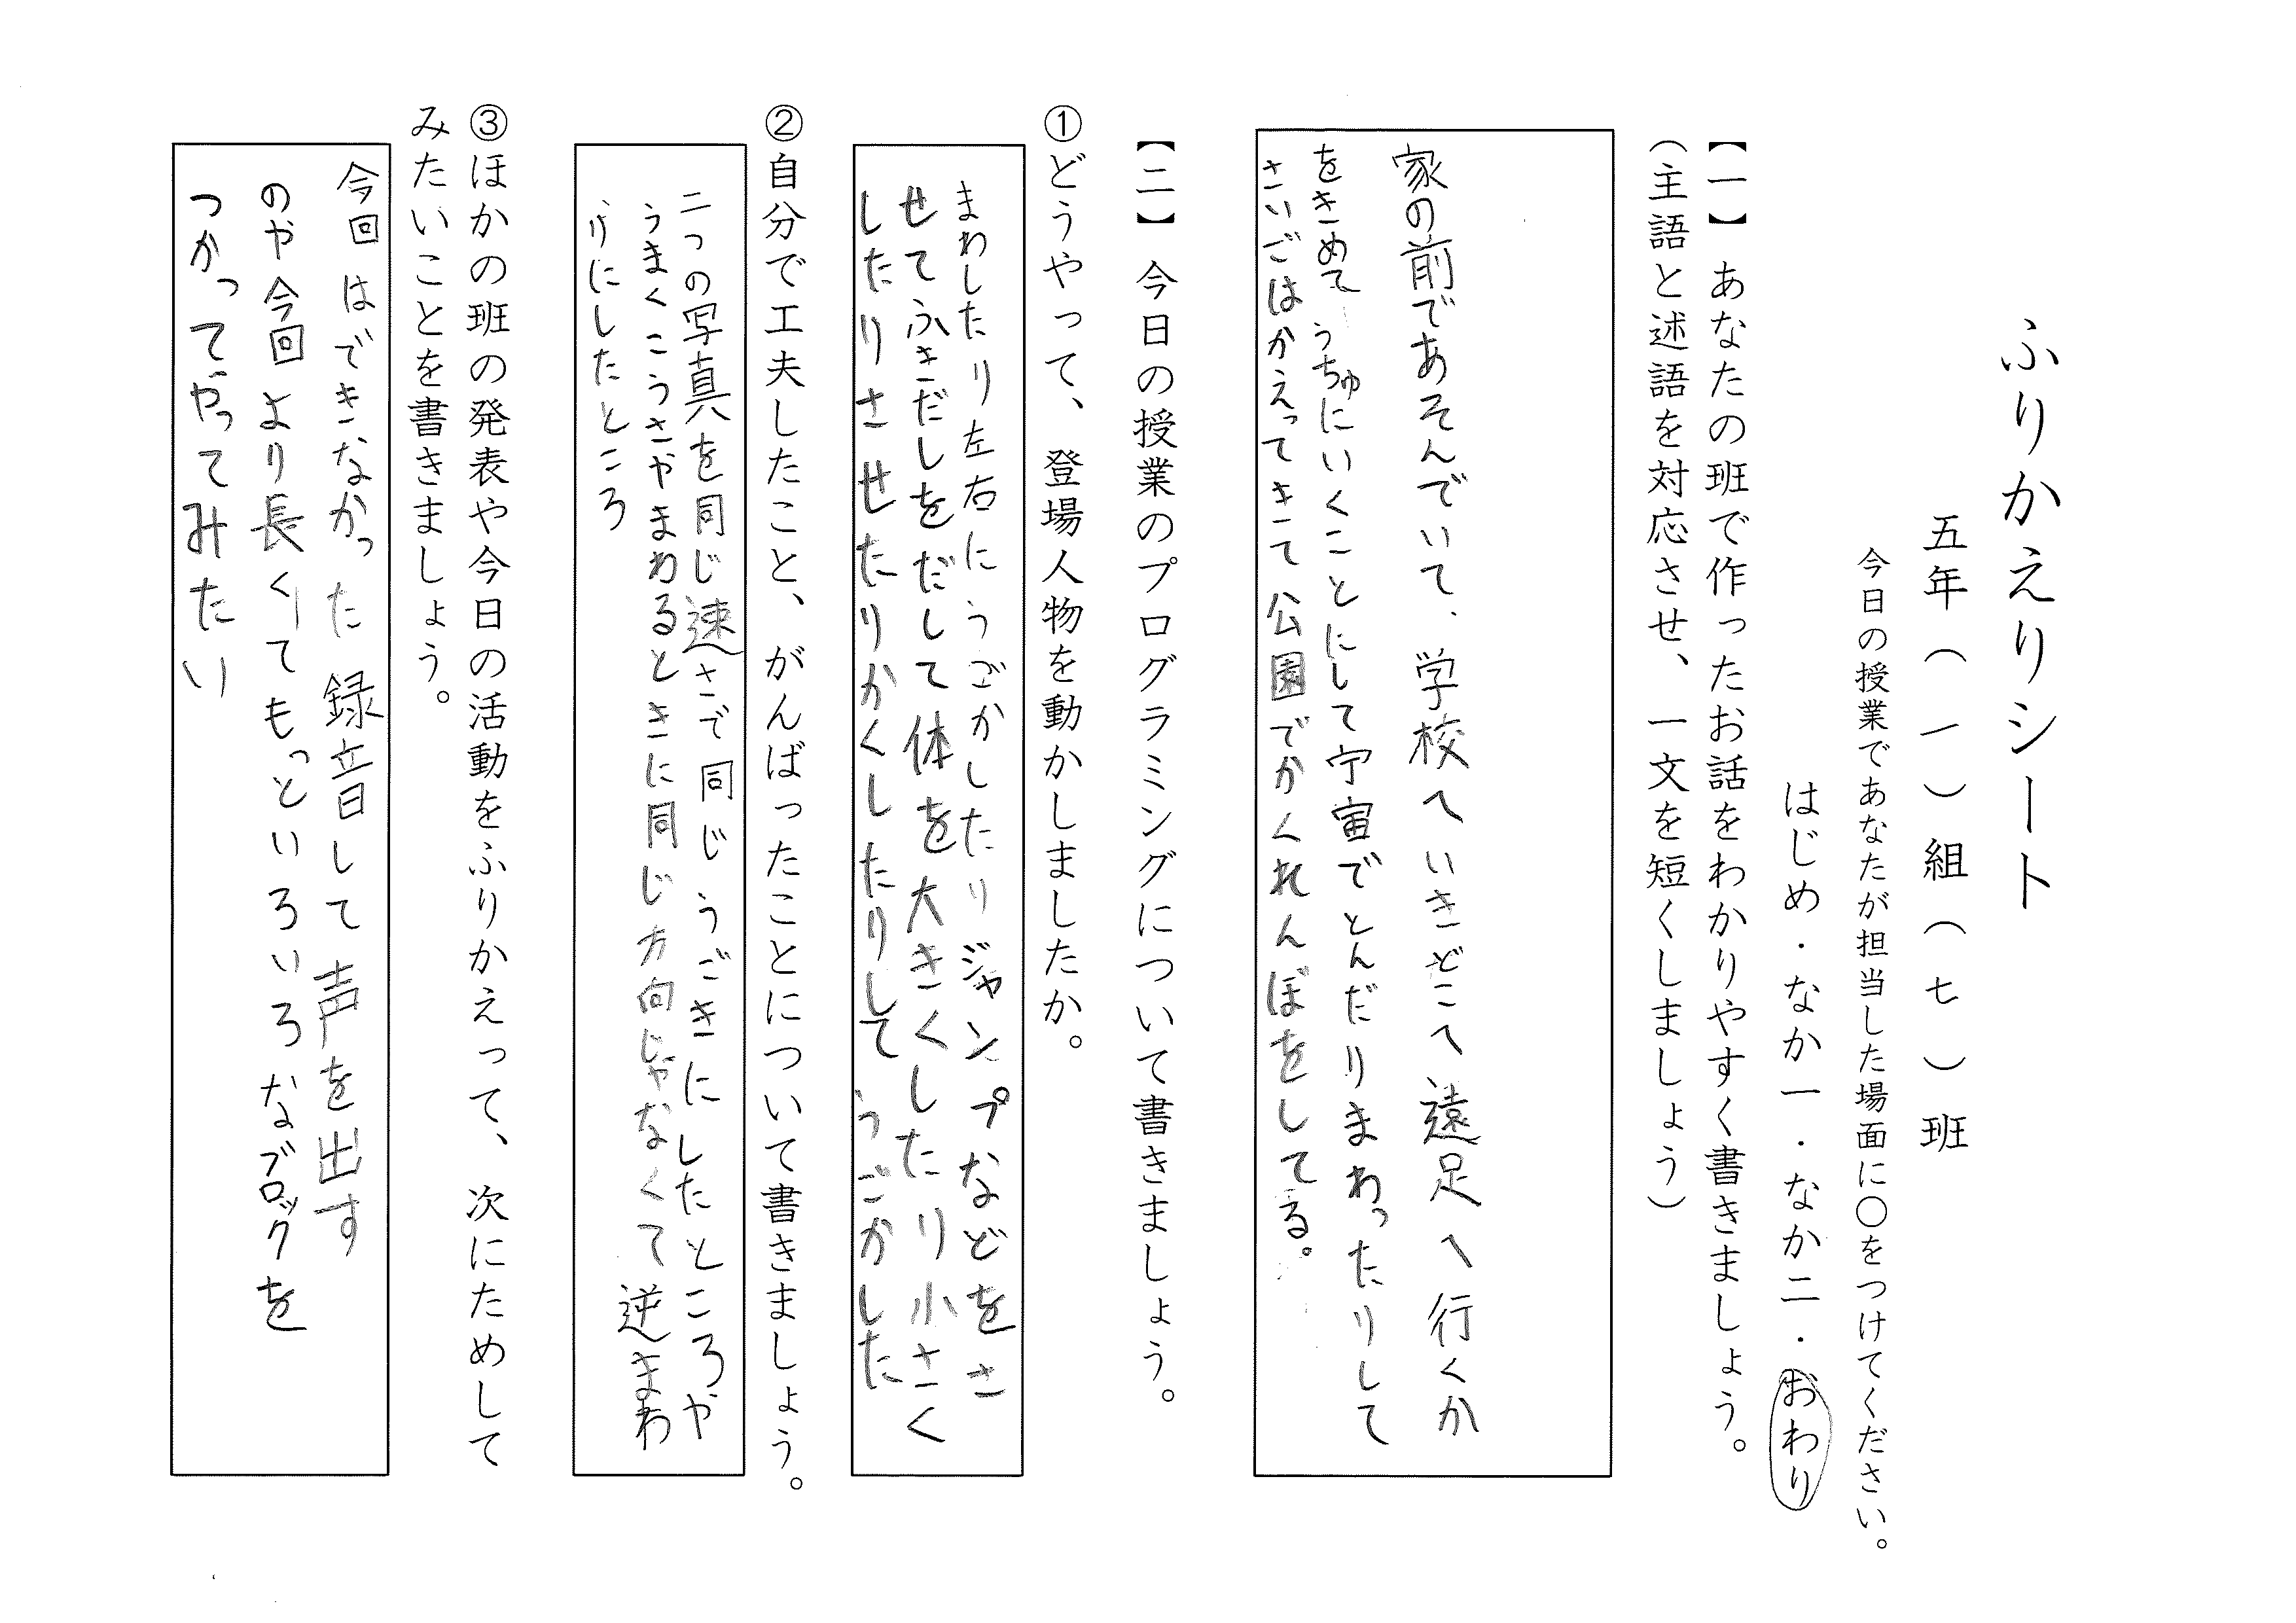 ふりかえりシート
五年（一）組（七）班
今日の授業であなたが担当した場面に○をつけてください。
はじめ・なか一・なか二・おわり
【一】あなたの班で作ったお話をわかりやすく書きましょう。
（主語と述語を対応させ、一文を短くしましょう）
家の前であそんでいて、学校へいきどこへ遠足へ行くか
をきめてうちゅにいくことにして宇宙でとんだりまわったりして
さいごはかえってきて公園でかくれんぼをしてる。
【二】今日の授業のプログラミングについて書きましょう。
①どうやって、登場人物を動かしましたか。
まわしたり左右にうごかしたりジャンプなどをさ
せてふきだしをだして体を大きくしたり小さく
したりさせたりかくしたりしてうごかした
②自分で工夫したこと、がんばったことについて書きましょう。
二つの写真を同じ速さで同じうごきにしたところや
うまくこうさやまわるときに同じ方向じゃなくて逆まわ
りにしたところ
③ほかの班の発表や今日の活動をふりかえって、次にためして
みたいことを書きましょう。
今回はできなかった録音して声を出す
のや今回より長くしてもっといろいろなブロックを
つかってやってみたい